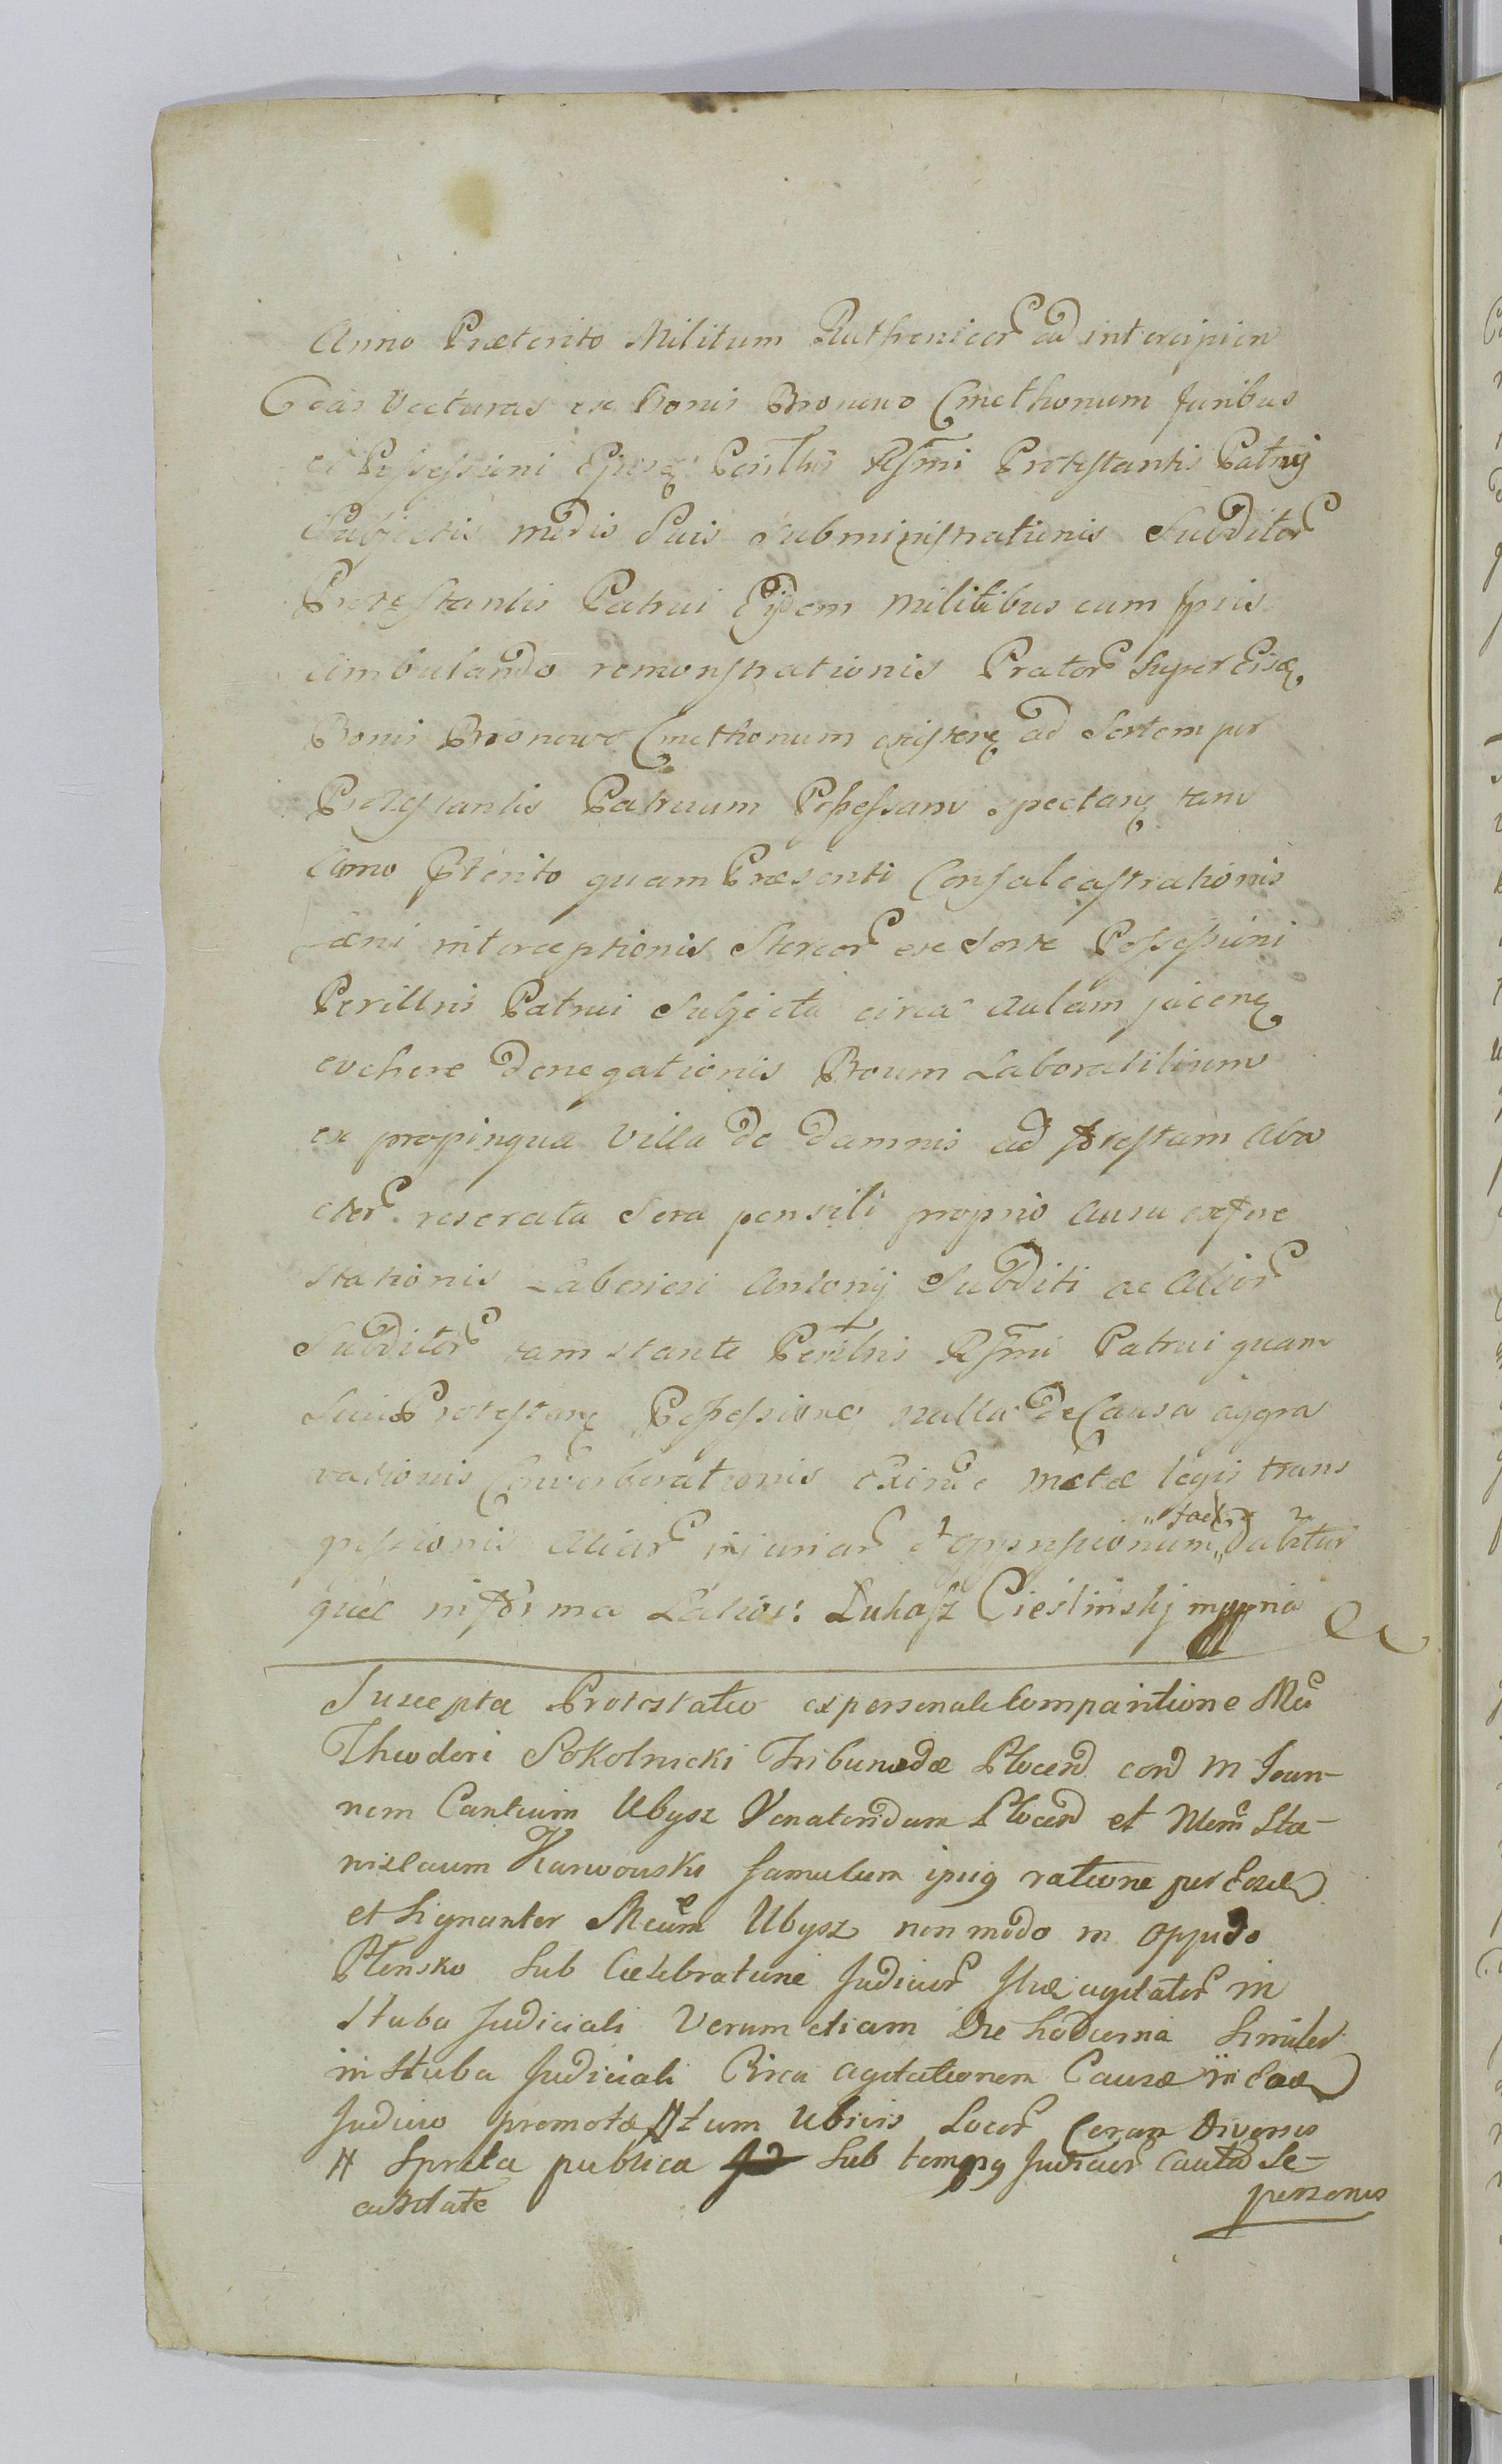 Anno Præterito Militum Ruthenicor ad intercipien
das Vecturas ex Bonis Bronowo Cmethonum Juribus
et Possessioni Ejusq Perillris Rssmi Protestantis Patruj
Subjectis medis Suis Subministrationis Subditor
Protestantis Patrui Eisdem militibus cum ipsis
ambulando remonstrationis Prator super Eisq
Bonis Bronowo Cmethonum existere ad Sortem per
Protestantis Patruum Possessam spectan tam
Anno Pterito quam Præsenti Confaleastrationis
fæni interceptionis Stercor ex Sorte Possessioni
Perillris Patrui Subjecta circa aulam jacen
evehere denegationis Boum Laboratilium
ex propinqua Villa de damnis ad forestam aba
ctor reserata Sera pensili proprio ausu exfore
stationis Laboriosi Antonij Subditi ac Alior
Subditor tam stante Perillris Rssmi Patrui quam
Suis Protestan Possessione nulla de Causa aggra
vationis Converberationis Exinde metæ legis trans
gressionis Aliar injuriar et oppressionum „fact„ dabitur
quæ in forma Latior: Lukasz Cieslinskj mppria
Suscepta Protestatio ex personali Comparitione Mci
Theodori Sokolnicki Tribunidæ Plocen con M Joan-
nem Cantium Ubysz Venatoridam Plocen et Nlem Sta-
nislaum Karwowski famulum ipsig ratione per Eosd
et signanter Mcum Ubysz non modo in oppido
Plonsko sub Celebratione Judicior Suæ agitator in
Stuba Judiciali Verum etiam Die hodierna Similes
in Stuba Judiciali Circa agitationem Causæ in eod
Judicio promotæ # tum Ubivis Locor Coram Diversis
# Spreta publica sub tempg Judicior Cauta Se-
curitate
personis